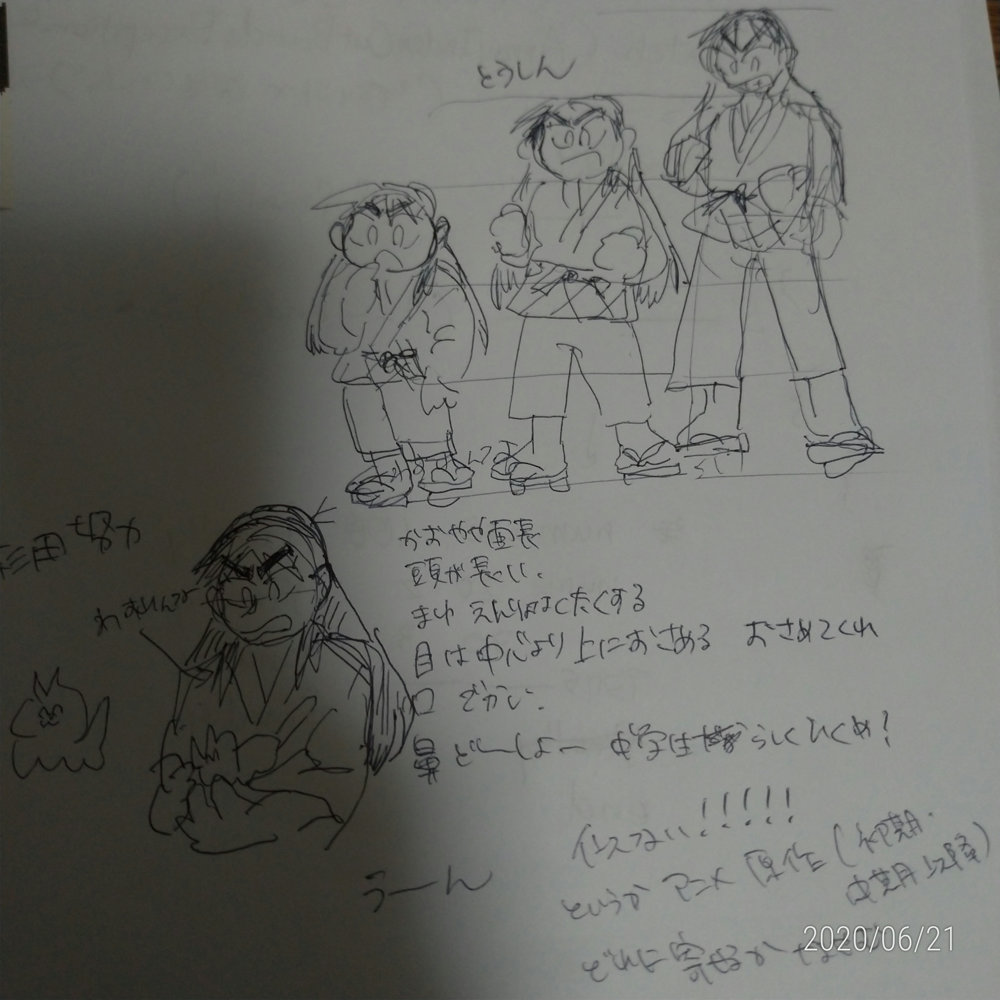 とうしん
かおやや面長
頭が長い.
まゆ えんりょなくたくする
目は中心より上におさめる おさめてくれ
口 でかい.
鼻どーしよー 中学生らしくひくめ?
杉田 努力
似てない!!!!!
というか アニメ 原作 (初期・
中期以降)
うーん
どれに寄せるか
2020/06/21